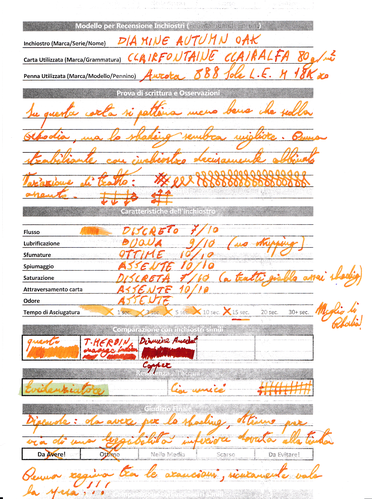 Modello per Recensione Inchiostri
Inchiostro (Marca/Serie/Nome) DIAMINE AUTUMN OAK
Carta Utilizzata (Marca/Grammatura) CLAIRFONTAINE CLAIRALFA 80 g/m²
Penna Utilizzata (Marca/Modello/Pennino) Aurora 888 Sole L.E. M 18K
Prova di scrittura e Osservazioni
Su questa carta si pattina meno bene che sulla
Rhodia, ma lo shading sembra migliore. Penna
strabiliante con inchiostro decisamente abbinato
Variazione di tratto:
assente.
Caratteristiche dell'Inchiostro
Flusso DISCRETO 7/10
Lubrificazione BUONA 9/10 (no skipping)
Sfumature OTTIME 10/10
Spiumaggio ASSENTE 10/10
Saturazione DISCRETA 7/10 (a tratti giallo assai shading)
Attraversamento carta ASSENTE 10/10
Odore ASSENTE
Tempo di Asciugatura 1 sec. 5 sec. 10 sec. 15 sec. 20 sec. 30+ sec. Meglio di Rhodia!
Comparazione con inchiostri simili
questo T. HERBIN orange indien Diamine Ancient Copper
Evidenziatore
Giudizio Finale
Dipende: da avere per lo shading, ottimo per
via di una leggibilità inferiore dovuta alla tinta
Da Avere! Ottimo Nella Media Scarso Da Evitare!
Penna regina tra le arancioni, sicuramente vale
la spesa!!!